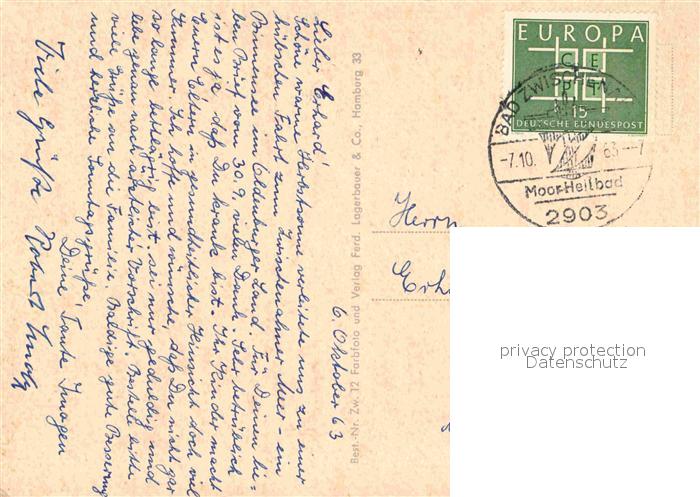 EUROPA
CEPT
15
DEUTSCHE BUNDESPOST
BAD ZWISCHEN
-7.10. 63--7
Moor-Heilbad
2903
6. Oktober 63
Lieber Erhard!
Schöne warme Herbstsonne verleitete uns zu einer
hübschen Fahrt zum Zwischenahner Meer - ein
Binnensee im Oldenburger Land. Für Deinen lie=
ben Brief vom 30.9. vielen Dank. Sehr betrüblich
ist es ja, daß Du krank bist. Ihr Kinder macht
Euren Eltern in gesundheitlicher Hinsicht doch viel
Kummer. Ich hoffe und wünsche, daß Du nicht gar
so lange bettlägrig bist, sei nur geduldig und
lebe genau nach ärztlicher Vorschrift. Bestelle bitte
viele Grüße an die Familie. Baldige gute Besserung
und herzliche Sonntagsgrüße,
Deine Tante Imogen
Viele Grüße Robert
Best.-Nr. Zw. 12 Farbfoto und Verlag Ferd. Lagerbauer & Co., Hamburg 33
Herrn
Erh
privacy protection
Datenschutz